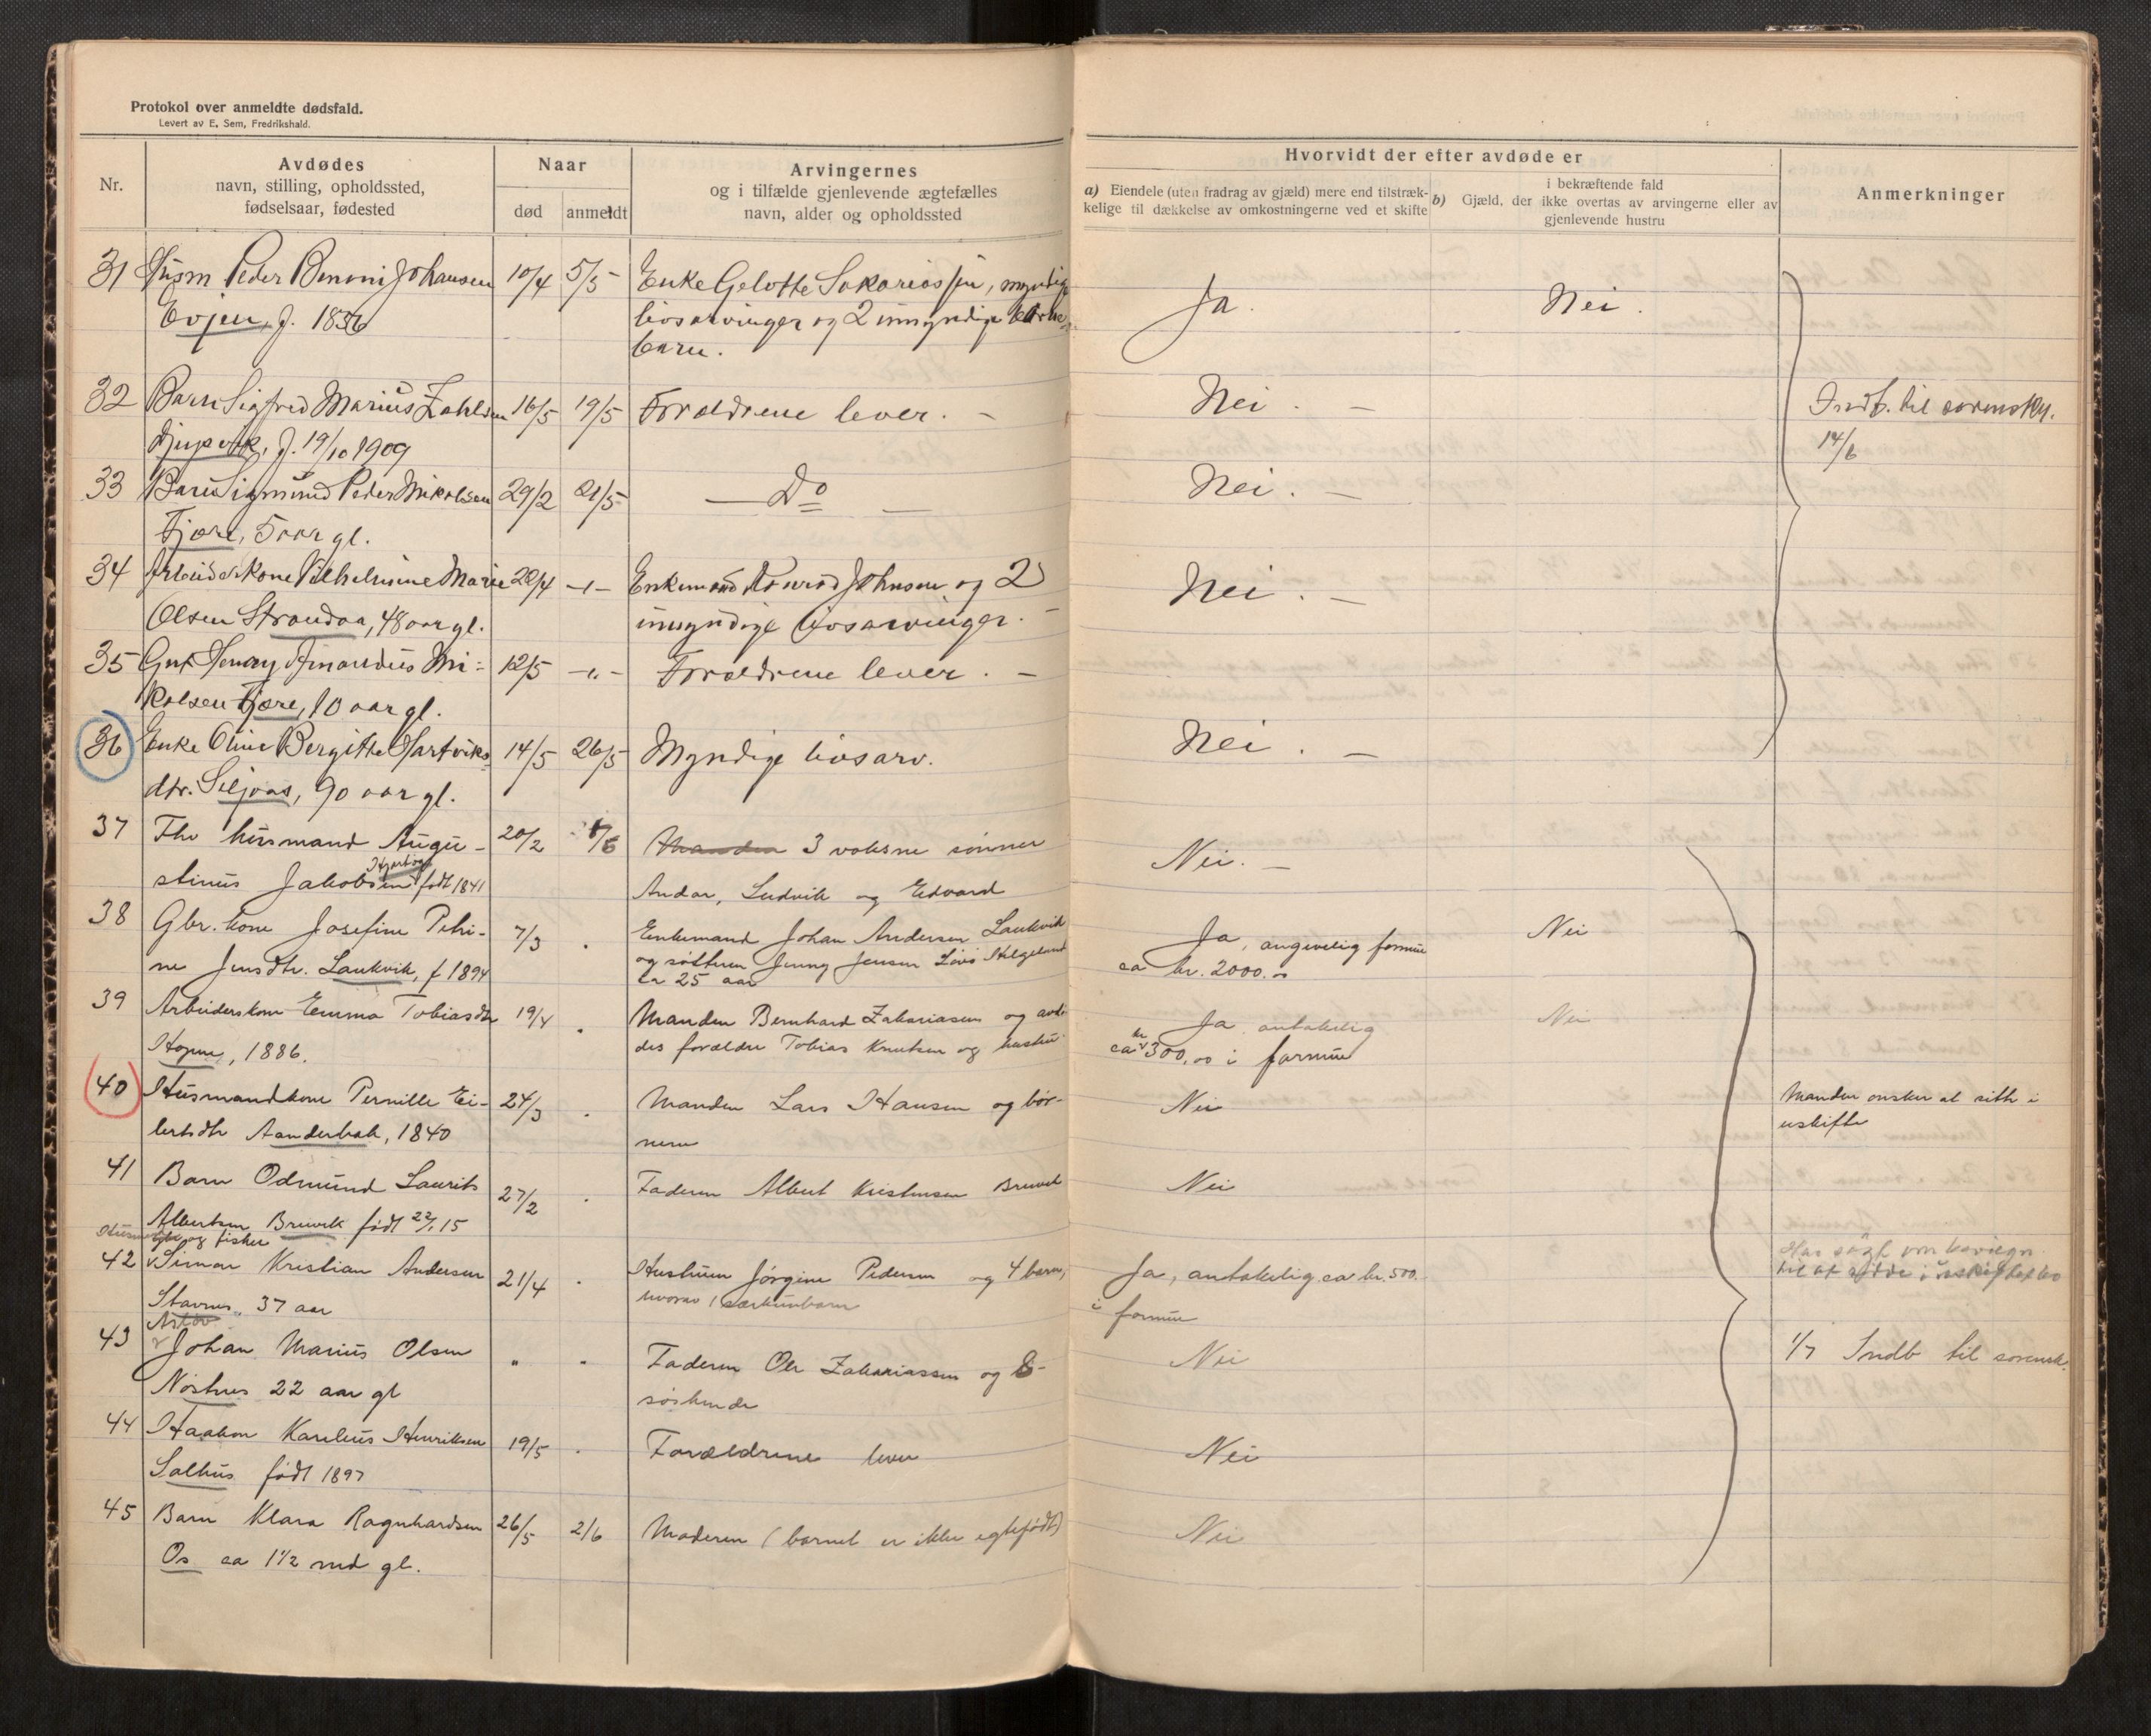 Protokol over anmeldte dødsfald.
Levert av E. Sem, Fredrikshald.
Nr.
Avdødes
navn, stilling, opholdssted,
fødselsaar, fødested
Naar
død
anmeldt
Arvingernes
og i tilfælde gjenlevende ægtefælles
navn, alder og opholdssted
Hvorvidt der efter avdøde er
a) Eiendele (uten fradrag av gjæld) mere end tilstræk-
kelige til dækkelse av omkostningerne ved et skifte
i bekræftende fald
b) Gjæld, der ikke overtas av arvingerne eller av
gjenlevende hustru
Anmerkninger
31 Husm Peder Benoni Johansen 10/4 5/5 Enke Gelotte Sakariassen, myndige
Evjen, f. 1836 livsarvinger og 2 umyndige
barn.
Ja. Nei.
32 Barn Sigfred Marius Zahlsen 16/5 19/5 Forældrene lever. - Nei. -
Djupvik, f. 19/10 1909
Indb. til sorenskr.
14/6
33 Barn Sigmund Peder Mikalsen 29/2 21/5 - Do - Nei. -
Fjære, 5 aar gl.
34 Arbeiderkone Vilhelmine Marie 22/4 -"- Enkemand Konrad Johnsen og 2
Olsen Strandaa, 48 aar gl. umyndige livsarvinger. - Nei. -
35 Gut Henry Amandus Mi-
12/5 -"- Forældrene lever. -
kalsen Fjære, 10 aar gl.
36 Enke Oline Bergitte Hartviks- 14/5 26/5 Myndige livsarv. Nei. -
dtr. Seljaas, 90 aar gl.
37 Fhv husmand Augu- 20/2 1/6 Manden 3 voksne sønner Nei. -
stinus Jakobsen født 1841 Andor, Ludvik og Edvard
38 Gbr. kone Josefine Petri- 7/3 " Enkemand Johan Andersen Laukvik
ne Jensdtr. Laukvik, f 1894 og søsteren Jenny Jensen Helgeland
ca 25 aar
Ja, angivelig formue Nei
ca kr. 2000.00
39 Arbeiderskone Emma Tobiasdtr 19/4 " Manden Bernhard Zakariasen og avdø-
Hopen, 1886. des forældre Tobias Knutsen og hustru
Ja antakelig Nei
ca kr 300,00 i formue
40 Husmandskone Pernille Ei- 24/3 " Manden Lars Hansen og bør- Nei
lertsdtr Aanderbak, 1840 nene
Manden ønsker at sitte i
uskifte
41 Barn Odmund Laurits 27/2 " Faderen Albert Kristensen Breivik Nei
Albertsen Breivik født 22/1 15
og fisker
42 Simon Kristian Andersen 21/4 " Hustruen Jørgine Pedersen og 4 barn,
Stavnes, 37 aar hvorav 1 særkuldbarn
Ja, antakelig ca kr. 500.
i formue
Har søgt om
til at sidde i uskiftet bo
43 Johan Marius Olsen " " Faderen Ole Zakariassen og 8 Nei
Nøstnes 22 aar gl søskende
1/7 Indb til sorensk.
44 Haakon Karelius Henriksen 19/5 " Forældrene lever Nei
Salhus født 1897
45 Barn Klara Ragnhardsen 26/5 2/6 Moderen (barnet er ikke egtefødt) Nei
Os ca 1½ md gl.